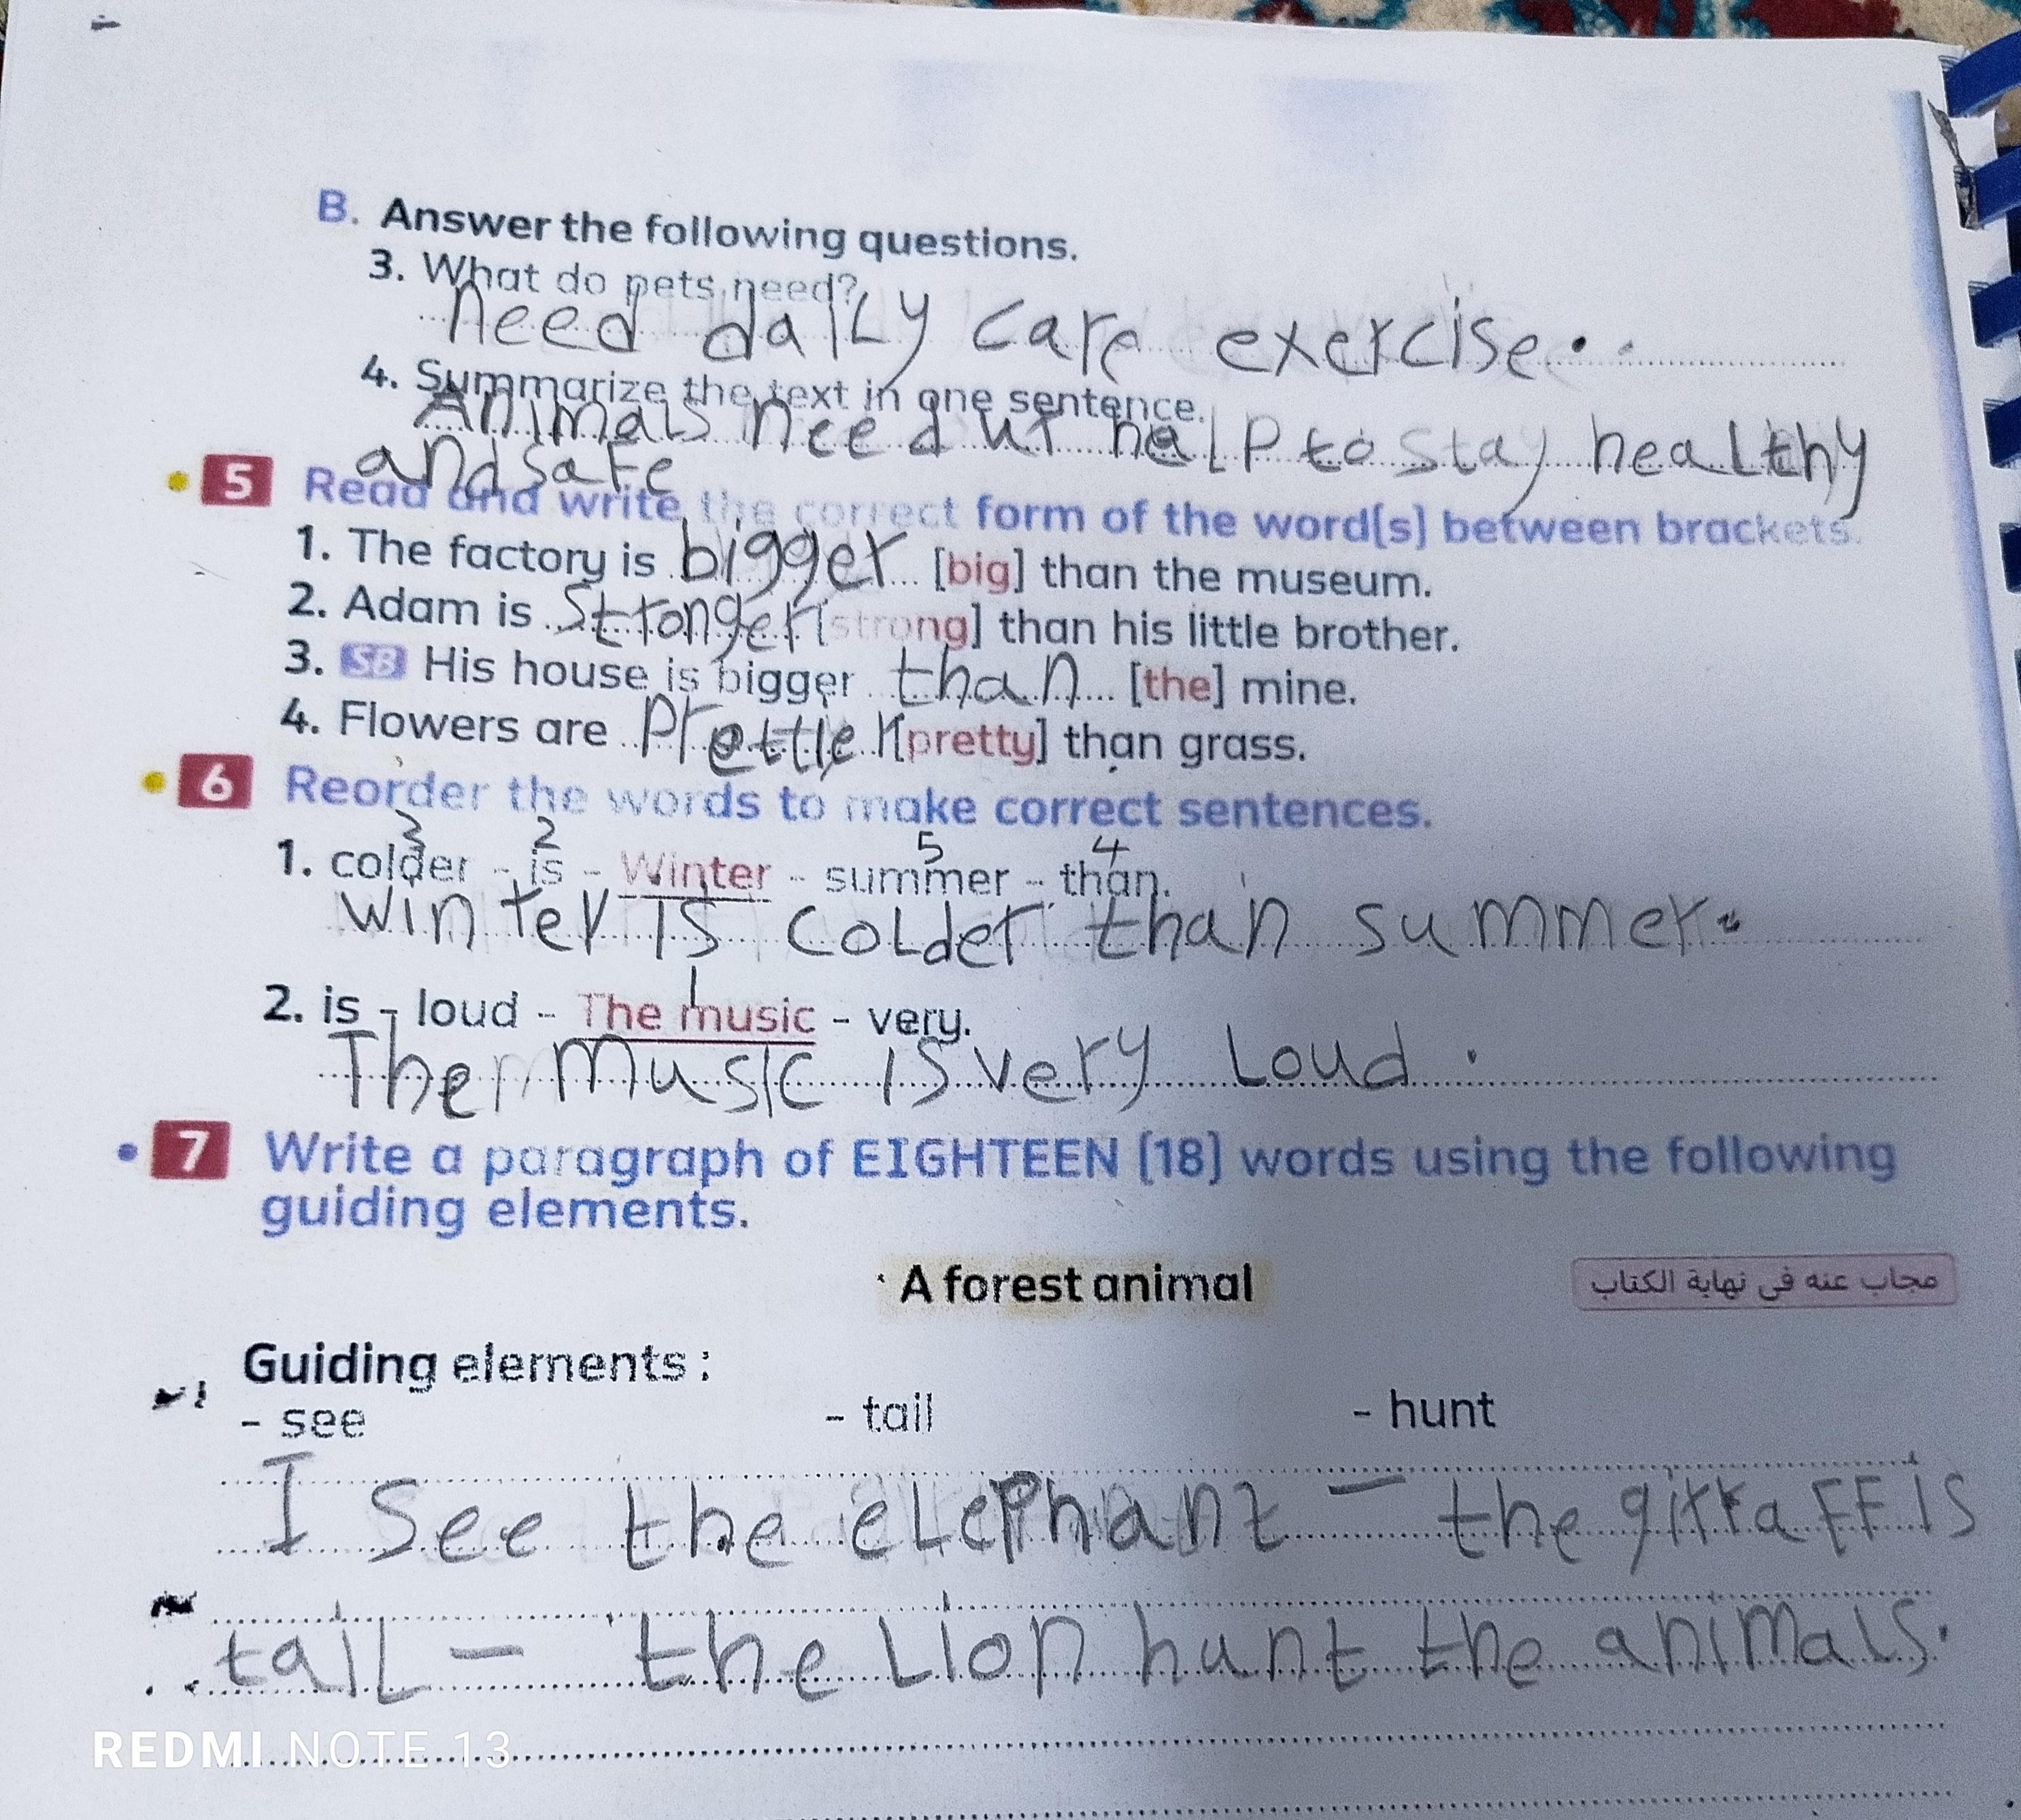 B. Answer the following questions.
3. What do pets need?
need daily care exercise.
4. Summarize the text in one sentence.
Animals need ur help to stay healthy
and safe
5 Read and write the correct form of the word(s) between brackets.
1. The factory is bigger [big] than the museum.
2. Adam is stronger [strong] than his little brother.
3. SB His house is bigger than [the] mine.
4. Flowers are prettier [pretty] than grass.
6 Reorder the words to make correct sentences.
3 2 5 4
1. colder - is - Winter - summer - than.
winter is colder than summer.
1
2. is - loud - The music - very.
The music is very loud.
7 Write a paragraph of EIGHTEEN (18) words using the following
guiding elements.
A forest animal
مجاب عنه فى نهاية الكتاب
Guiding elements :
- see - tail - hunt
I see the elephant - the girraff is
tail - the lion hunt the animals.
REDMI NOTE 13